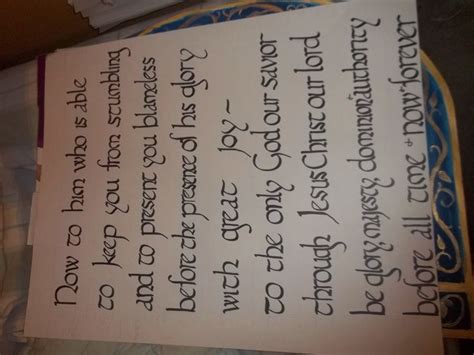 Now to him who is able
to keep you from stumbling
and to present you blameless
before the presence of his glory
with great joy ~
to the only God our savior
through Jesus Christ our lord
be glory majesty dominion authority
before all time + now + forever